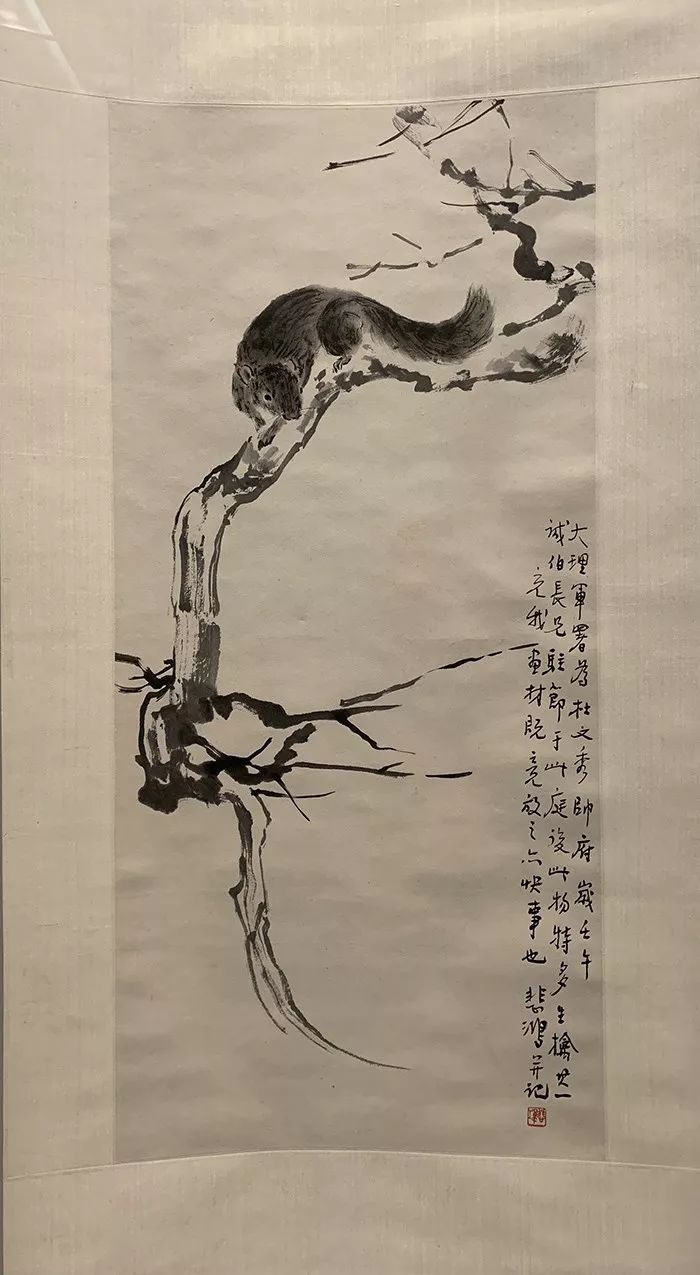 大理軍署為杜文秀帥府歲壬午
誠伯長兄駐節于此庭後此物特多生擒其一
竟我畫材既竟放之亦快事也 悲鴻并記